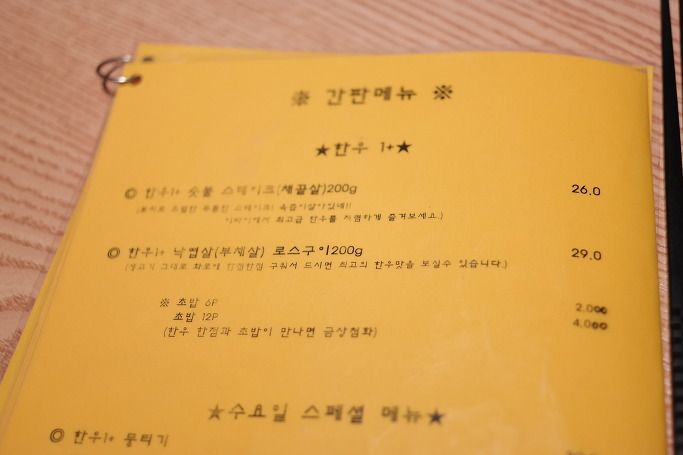 ※ 간판메뉴 ※
★한우 1+★
◎ 한우1+ 숯불 스테이크(채끝살)200g 26.0
육즙이살아있네!!
최고급 한우를 저렴하게 즐겨보세요.)
◎ 한우1+ 낙엽살(부채살) 로스구이200g 29.0
(생고기 그대로 화로에 한점한점 구워서 드시면 최고의 한우맛을 보실수 있습니다.)
※ 초밥 6P 2.000
초밥 12P 4.000
(한우 한점과 초밥이 만나면 금상첨화)
★수요일 스페셜 메뉴★
◎ 한우1+ 뭉티기